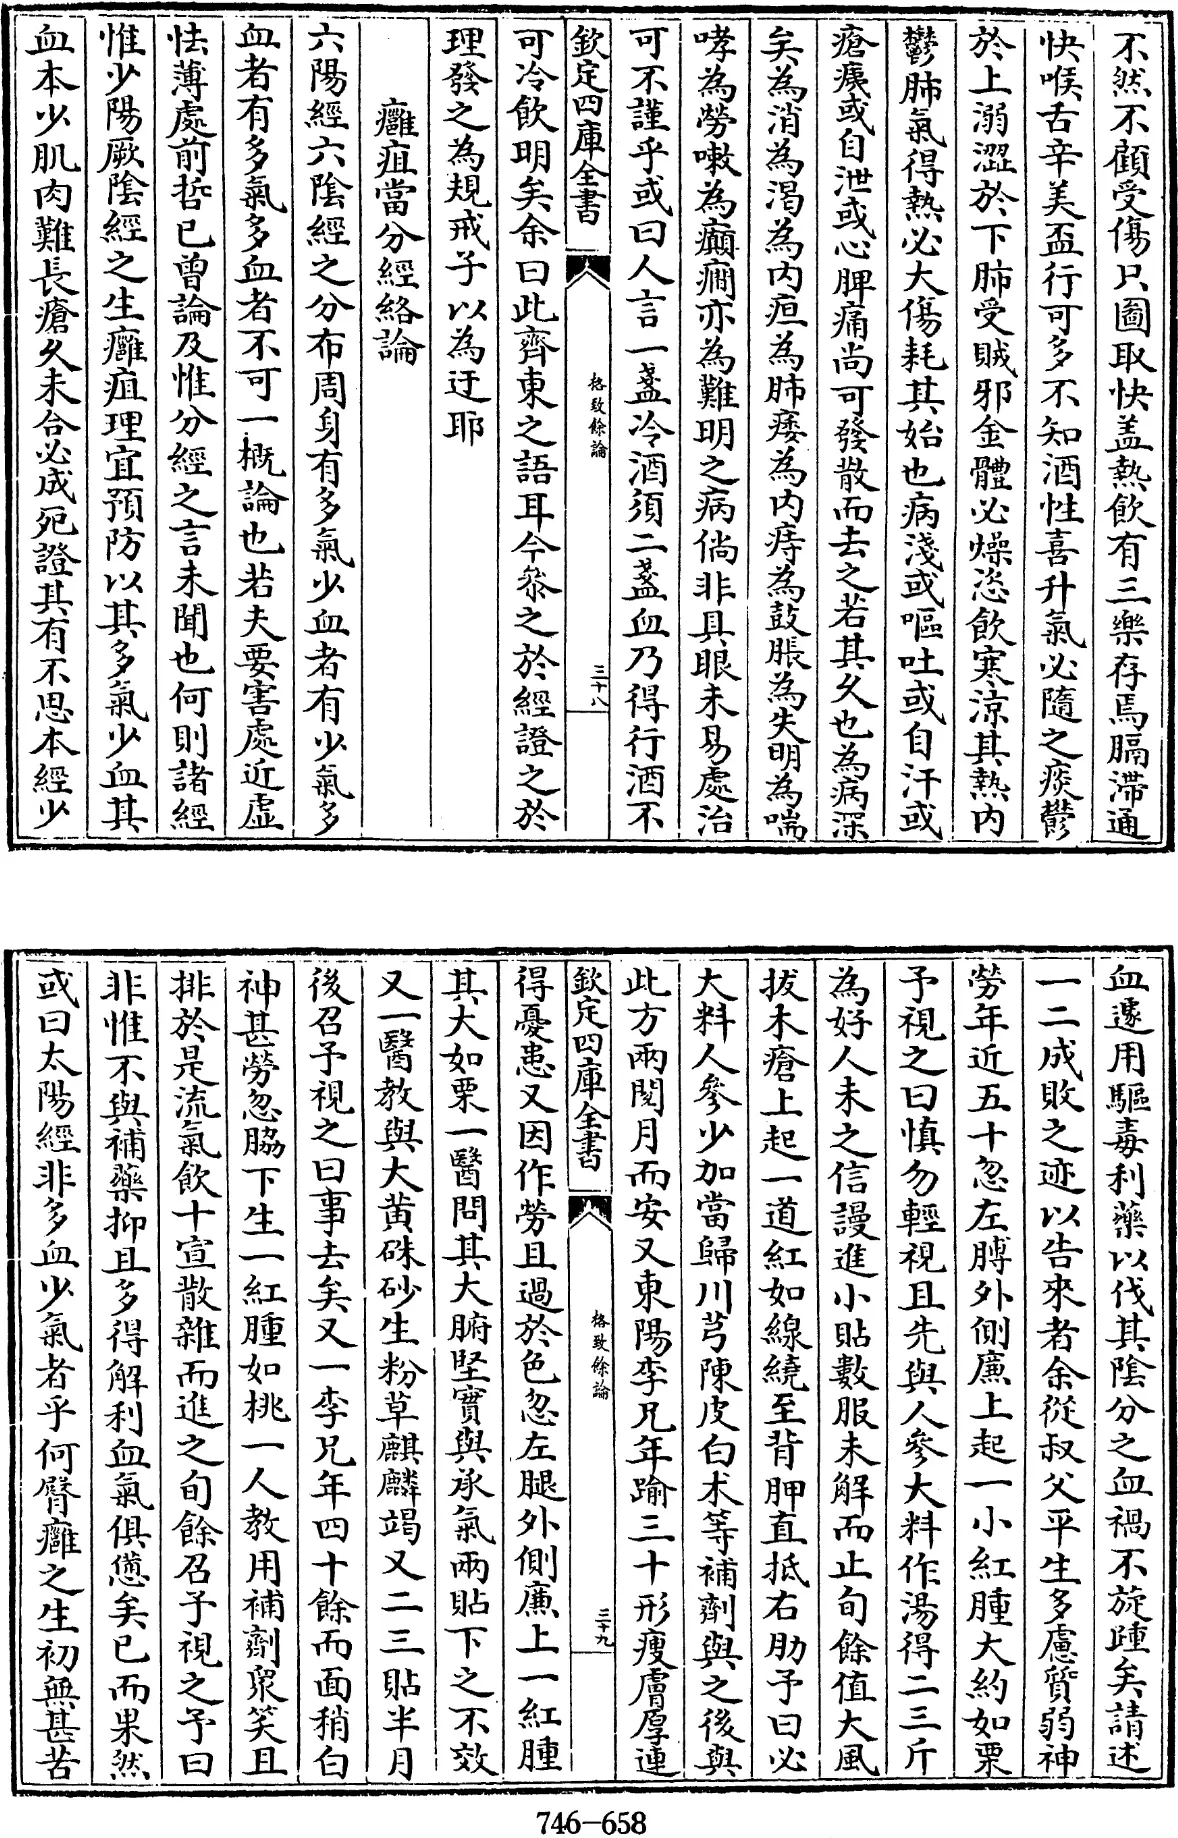 不然不顧受傷只圖取快盖熱飲有三樂存焉膈滯通
快喉舌辛美盃行可多不知酒性喜升氣必隨之痰鬱
於上溺澀於下肺受賊邪金體必燥恣飲寒涼其熱内
鬱肺氣得熱必大傷耗其始也病淺或嘔吐或自汗或
瘡痍或自泄或心脾痛尚可發散而去之若其久也為病深
矣為消為渇為内疸為肺痿為内痔為鼓脹為失明為喘
哮為勞嗽為癲癇亦為難明之病倘非具眼未易處治
可不謹乎或曰人言一盞冷酒須二盞血乃得行酒不
欽定四庫全書
格致餘論
三十八
可冷飲明矣余曰此齊東之語耳今叅之於經證之於
理發之為規戒子以為迂耶
癰疽當分經絡論
六陽經六隂經之分布周身有多氣少血者有少氣多
血者有多氣多血者不可一概論也若夫要害處近虛
怯薄處前哲已曾論及惟分經之言未聞也何則諸經
惟少陽厥隂經之生癰疽理宜預防以其多氣少血其
血本少肌肉難長瘡久未合必成死證其有不思本經少
血遽用驅毒利藥以伐其隂分之血禍不旋踵矣請述
一二成敗之迹以告來者余從叔父平生多慮質弱神
勞年近五十忽左膊外側廉上起一小紅腫大約如栗
予視之曰慎勿輕視且先與人參大料作湯得二三斤
為好人未之信謾進小貼數服未解而止旬餘值大風
拔木瘡上起一道紅如線繞至背胛直抵右肋予曰必
大料人參少加當歸川芎陳皮白术等補劑與之後與
此方兩閲月而安又東陽李兄年踰三十形瘦膚厚連
欽定四庫全書
格致餘論
三十九
得憂患又因作勞且過於色忽左腿外側廉上一紅腫
其大如栗一醫問其大腑堅實與承氣兩貼下之不效
又一醫教與大黄硃砂生粉草麒麟竭又二三貼半月
後召予視之曰事去矣又一李兄年四十餘而面稍白
神甚勞忽脇下生一紅腫如桃一人教用補劑衆笑且
排於是流氣飲十宣散雜而進之旬餘召予視之予曰
非惟不與補藥抑且多得解利血氣俱憊矣已而果然
或曰太陽經非多血少氣者乎何臀癰之生初無甚苦
746-658